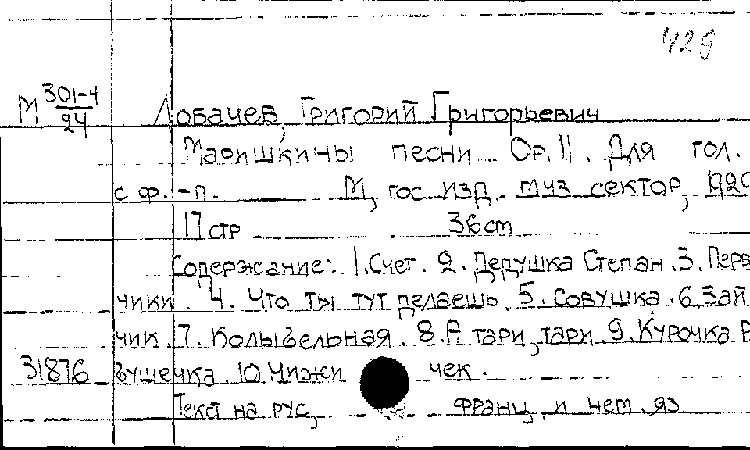 429
М 301-4/24 Лобачев, Григорий Григорьевич
Маришкины песни Op. 11. Для гол.
с ф.-п. М, гос изд. муз сектор, 1929
11 стр 36 cm
Содержание: 1.Счет. 2. Дедушка Степан. 3. Перв
чики. 4. Что ты тут делаешь. 5. Совушка. 6 Зай
чик. 7. Колыбельная. 8. А тари, тари 9. Курочка Р
31876 вушечка 10. Чижи чек.
Текст на рус, франц. и нем. яз